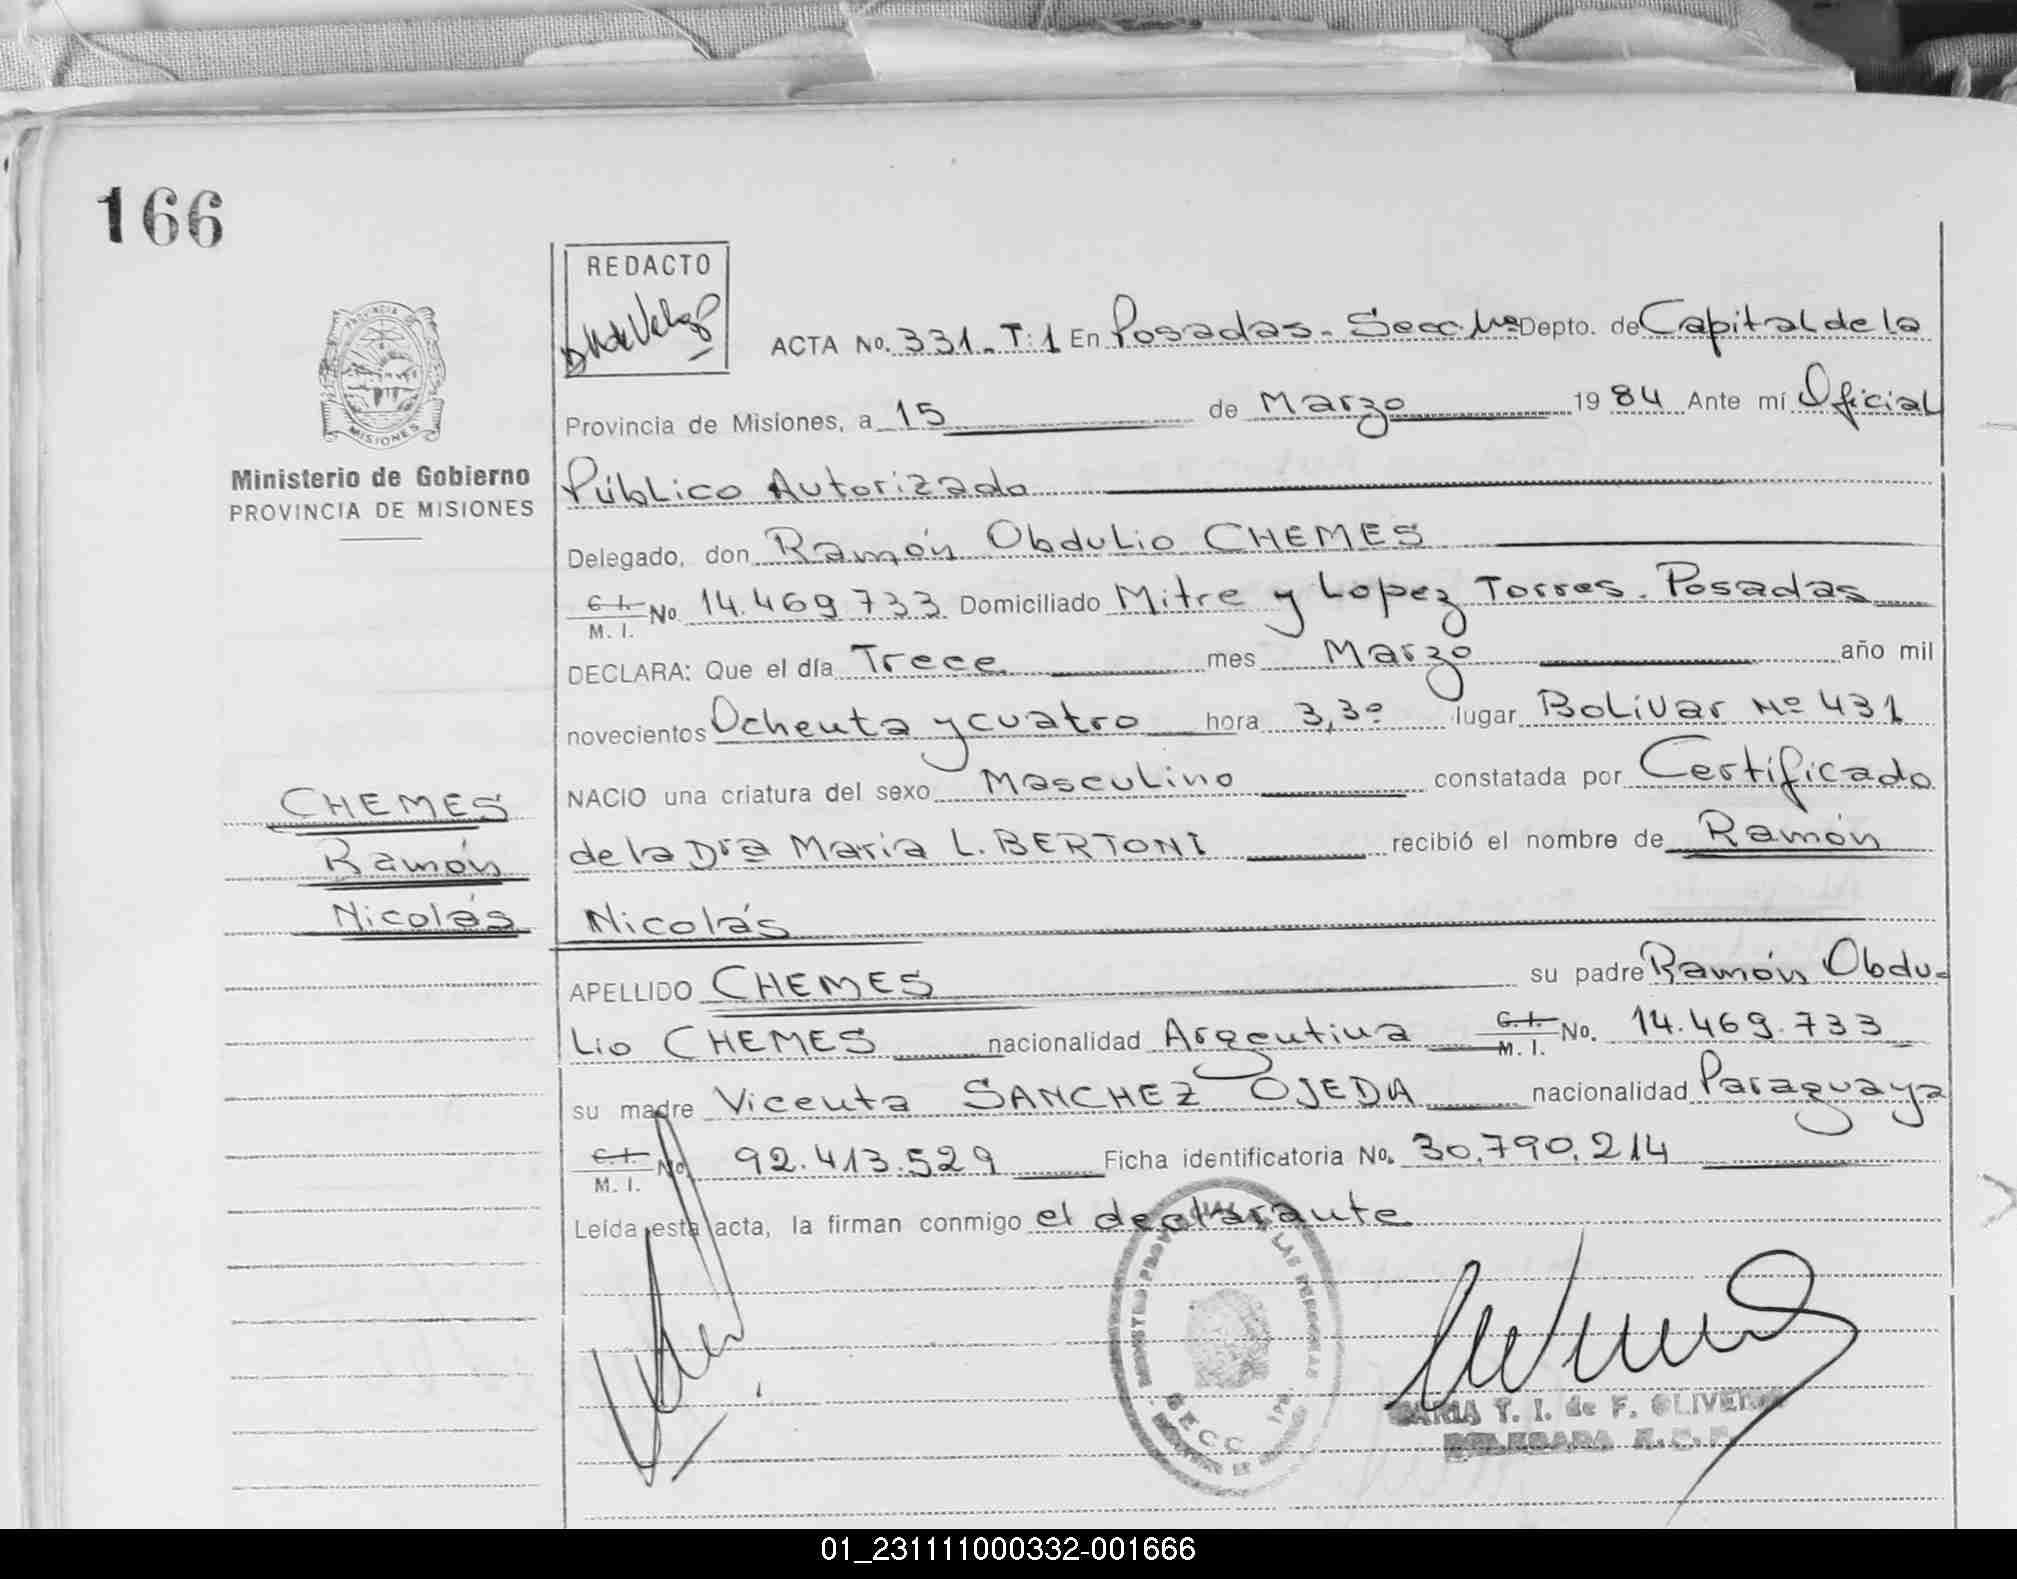 166
REDACTO
ACTA No. 331. T: 1 En Posadas. Secc. 1ra Depto. de Capital de la
Provincia de Misiones, a 15 de Marzo 1984 Ante mí Oficial
PROVINCIA DE
MISIONES
Ministerio de Gobierno
PROVINCIA DE MISIONES
Público Autorizado
Delegado, don Ramón Obdulio CHEMES
C. I.
M. I. No. 14.469.733 Domiciliado Mitre y Lopez Torres. Posadas
DECLARA: Que el día Trece mes Marzo año mil
novecientos Ochenta y cuatro hora 3,3º lugar Bolívar Nº 431
NACIO una criatura del sexo Masculino constatada por Certificado
de la Dra María L. BERTONI recibió el nombre de Ramón
Nicolás
CHEMES
Ramón
Nicolás
APELLIDO CHEMES su padre Ramón Obdu-
lio CHEMES nacionalidad Argentina C. I.
M. I. No. 14.469.733
su madre Vicenta SANCHEZ OJEDA nacionalidad Paraguaya
C. I.
M. I. No. 92.413.529 Ficha identificatoria No. 30.790.214
Leída esta acta, la firman conmigo el declarante
DE LAS PERSONAS
SECC
MARIA T. I. de F. OLIVERA
DELEGADA R.C.P.
01_231111000332-001666